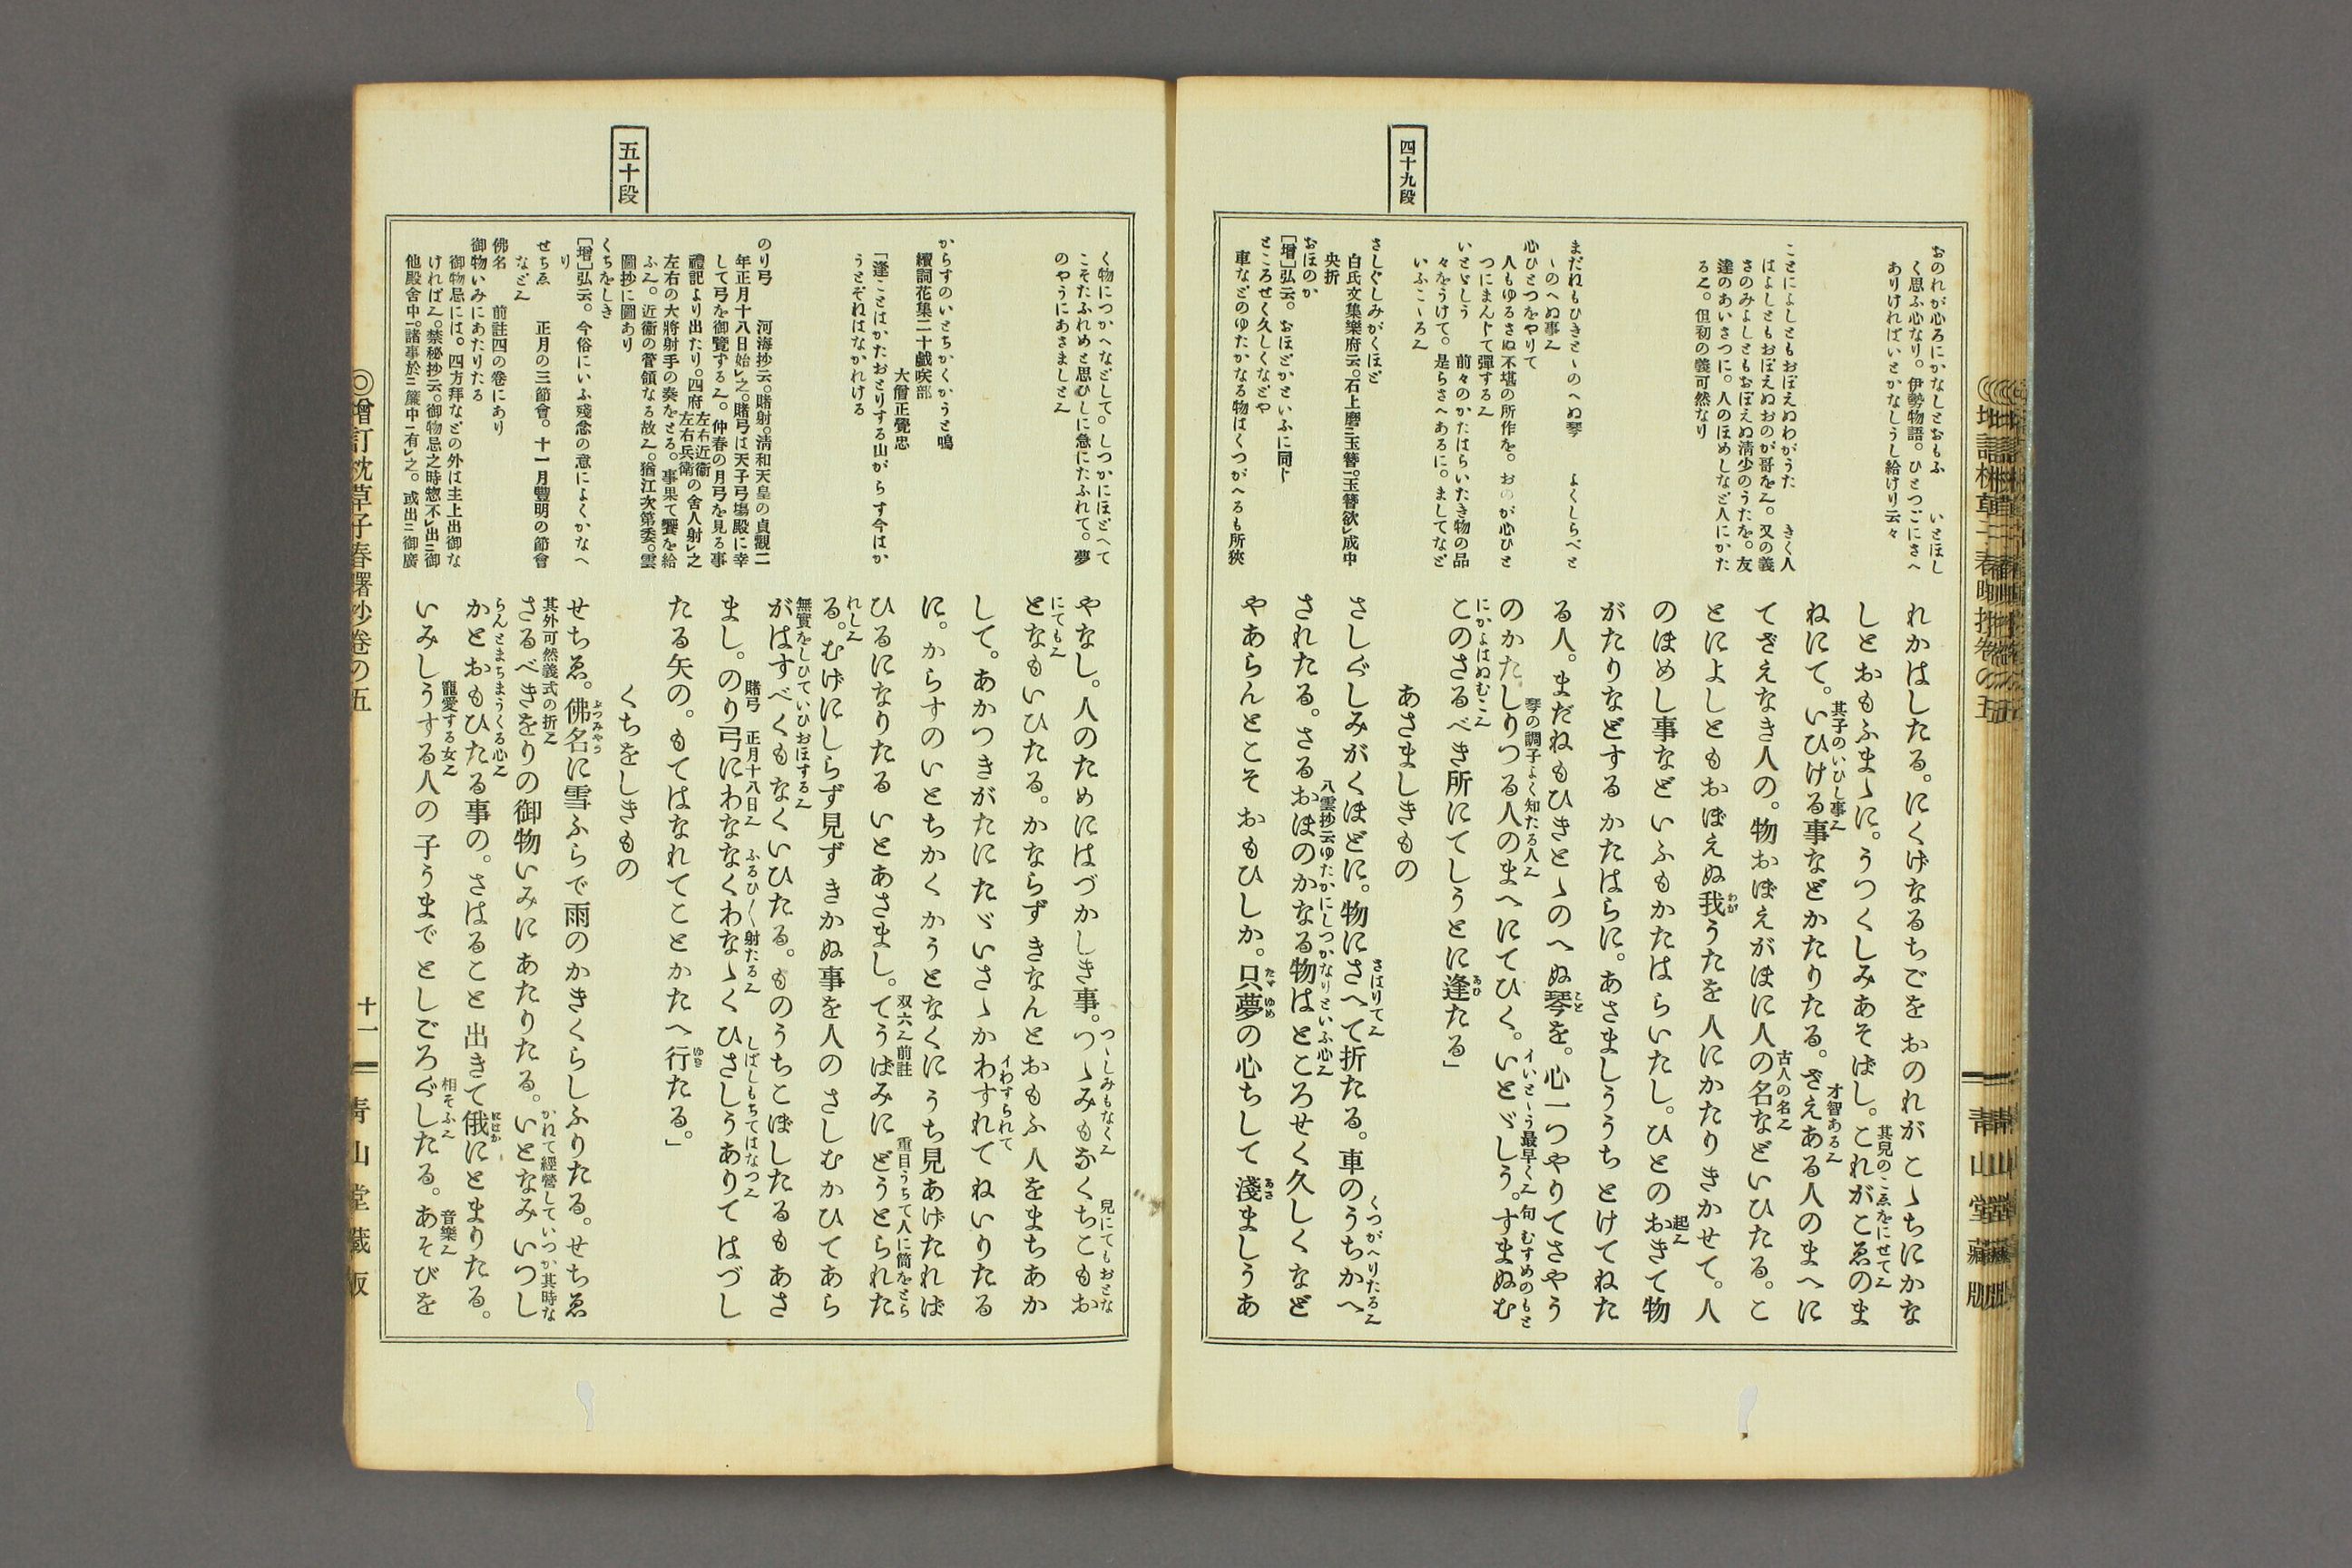 四十九段
おのれが心ろにかなしとおもふ　いとほし
く思ふ心なり。伊勢物語。ひとつごにさへ
ありければいとかなしうし給けり云々
ことによしともおぼえぬわがうた　きく人
はよしともおぼえぬおのが哥を也。又の義
さのみよしともおぼえぬ淸少のうたを。友
達のあいさつに。人のほめしなど人にかた
る也。但初の義可然なり
まだねもひきとゝのへぬ琴　よくしらべと
ゝのへぬ事也
心ひとつをやりて
人もゆるさぬ不堪の所作を。おのが心ひと
つにまんじて彈する也
いとゞしう　前々のかたはらいたき物の品
々をうけて。是らさへあるに。ましてなど
いふこゝろ也
さしぐしみがくほど
白氏文集樂府云。石上磨玉簪。玉簪欲成中
央折
おほのか
［増］弘云。おほどかといふに同じ
ところせく久しくなどや
車などのゆたかなる物はくつがへるも所狹
れかはしたる。にくげなるちごを おのれが こゝちにかな
しとおもふまゝに。うつくしみあそばし。これがこゑのま
其兒のこゑをにせて也
ねにて。いひける事などかたりたる。ざえある人のまへに
其子のいひし事也
才智ある也
てざえなき人の。物おぼえがほに人の名などいひたる。こ
古人の名也
とによしともおぼえぬ我うたを 人にかたりきかせて。人
わが
のほめし事など いふもかたは らいたし。ひとのおきて物
起也
がたりなどする かたはらに。あさましううち とけてねた
る人。まだねもひきとゝのへぬ琴を。心一つやりてさやう
こと
のかたしりつる人のまへにてひく。いとゞしう。すまぬむ
琴の調子よく知たる人也
イいとゝう最早く也 句 むすめのもと
にかよはぬむこ也
このさるべき所にてしうとに逢たる」
あひ
あさましきもの
さしぐしみがくほどに。物にさへて折たる。車のうちかへ
さはりて也
くつがへりたる也
されたる。さるおほのかなる物はところせく久しくなど
八雲抄云ゆたかにしつかなりといふ心也
やあらんとこそ おもひしか。只夢の心ちして 淺ましうあ
たゞ ゆめ
あさ
五十段
く物につかへなどして。しつかにほどへて
こそたふれめと思ひしに急にたふれて。夢
のやうにあさましと也
からすのいとちかくかうと鳴
續詞花集二十戯咲部
大僧正覺忠
「逢ことはかたおとりする山がらす今はか
うとぞねはなかれける
のり弓　河海抄云。賭射。淸和天皇の貞觀二
年正月十八日始之。賭弓は天子弓塲殿に幸
して弓を御覽する也。仲春の月弓を見る事
禮記より出たり。四府左右近衞左右兵衞の舍人射之
左右の大將射手の奏をとる。事果て饗を給
ふ也。近衞の管領なる故也。猶江次第委。雲
圖抄に圖あり
くちをしき
［増］弘云。今俗にいふ殘念の意によくかなへ
り
せちゑ　正月の三節會。十一月豐明の節會
など也
佛名　前註四の卷にあり
御物いみにあたりたる
御物忌には。四方拜などの外は主上出御な
ければ也。禁秘抄云。御物忌之時惣不出御
他殿舍中。諸事於簾中有之。或出御廣
やなし。人のためにはづかしき事。つゝみもなくちこもお
つゝしみもなく也
兒にてもおとな
にても也
となもいひたる。かならず きなんとおもふ人をまちあか
して。あかつきがたにたゞいさゝかわすれてねいりたる
イわすられて
に。からすのいとちかく かうとなくに うち見あげたれば
ひるになりたる いとあさまし。てうばみに どうとられた
双六也 前註
重目うちて人に筒をとら
れし也
る。むげにしらず見ず きかぬ事を人の さしむかひてあら
がはすべくもなくいひたる。ものうちこぼしたるもあさ
無實をしひていひおほする也
まし。のり弓にわななくわなゝく ひさしうありてはづし
賭弓　正月十八日也　ふるひ〳〵射たる也
しばしもちてはなつ也
たる矢の。もてはなれてことかたへ行たる。」
ゆき
くちをしきもの
せちゑ。佛名に雪ふらで雨のかきくらしふりたる。せちゑ
ぶつみやう
さるべきをりの御物いみに あたりたる。いとなみいつし
其外可然義式の折也
かれて經營していつか其時な
らんとまちまうくる心也
かとおもひたる事の。さはること 出きて俄にとまりたる。
にはか
いみしうする人の 子うまで としごろぐしたる。あそびを
寵愛する女也
相そふ也
音樂也
◎增訂枕草子春曙抄卷の五
十一
靑山堂藏版